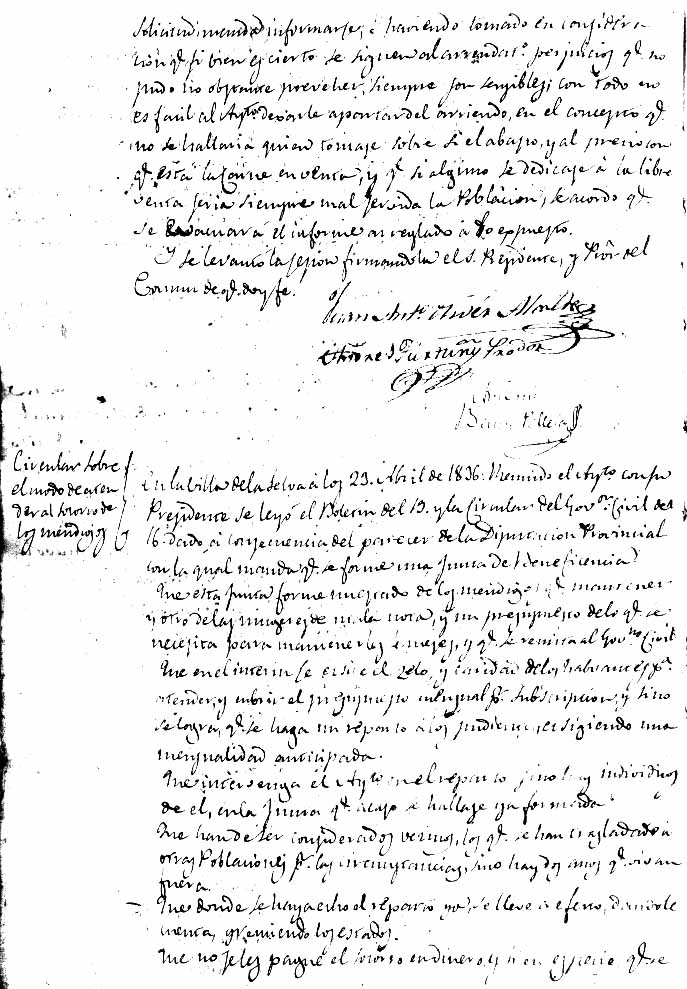 solicitud mandad informarse, é haviendo tomado en consider-
cion qe. si bien es cierto se siguen al arrendato. perjuicios qe. no
pudo no obstante preveher, siempre son sensibles; con todo no
es facil al Ayto. dexarle apartar del arriendo, en el concepto qe.
no se hallaria quien tomase sobre si el abasto, y al precio con
qe. está la Carne en venta, y qe. si alguno se dedicase á la libre
venta seria siempre mal servida la Poblacion, se acordo qe.
se evacuará el informe arreglado á lo expuesto.
Y se levantó la sesion firmandola el S. Presidente, y Pror. del
Comun de qe. doy fe.
Juan Anto. Oliver Alcalde
Circular sobre
el modo de aten
der al socorro de
los mendigos
En la Villa de la Selva á los 23. Abril de 1836. Reunido el Ayto. con su
Presidente se leyó el Boletin del 19. y la Circular del Govor. Civil del
16. dado á consequencia del parecer de la Diputacion Provincial
con la qual manda qe. se forme una Junta de Beneficencia
Que esta Junta forme un estado de los mendigos qe. mantener
y otro de las mugeres de mala nota, y un presupuesto de lo qe. se
necesita para mantenerles é meses, y qe. se remita al Govno. Civil
Que en el interin se exsite el zelo, y caridad de los habitantes pa.
atender, y cubrir el presupuesto mensual pr. subscripcion, y sino
se logra, qe. se haga un reparto á los pudientes exsigiendo una
mensualidad anticipada.
Que intervenga el Ayto. en el reparto sino hay individuos
de el, en la Junta qe. acaso se hallase ya formada
Que han de ser considerados vecinos, los qe. se han trasladado á
otras Poblaciones pr. las circunstancias, sino hay dos años qe. vivan
fuera.
Que donde se haya echo el reparto ya se lleve á efecto, dandole
cuenta, y remitiendo los estados.
Que no se les pague el socorro en dinero, y si en especie, qe. se